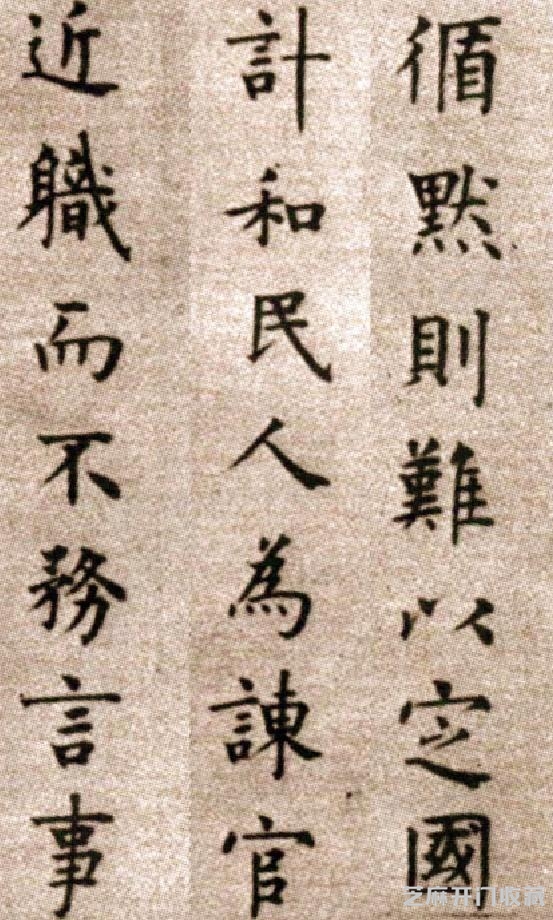 循默則難以定國
計和民人為諫官
近職而不務言事
芝麻开门收藏